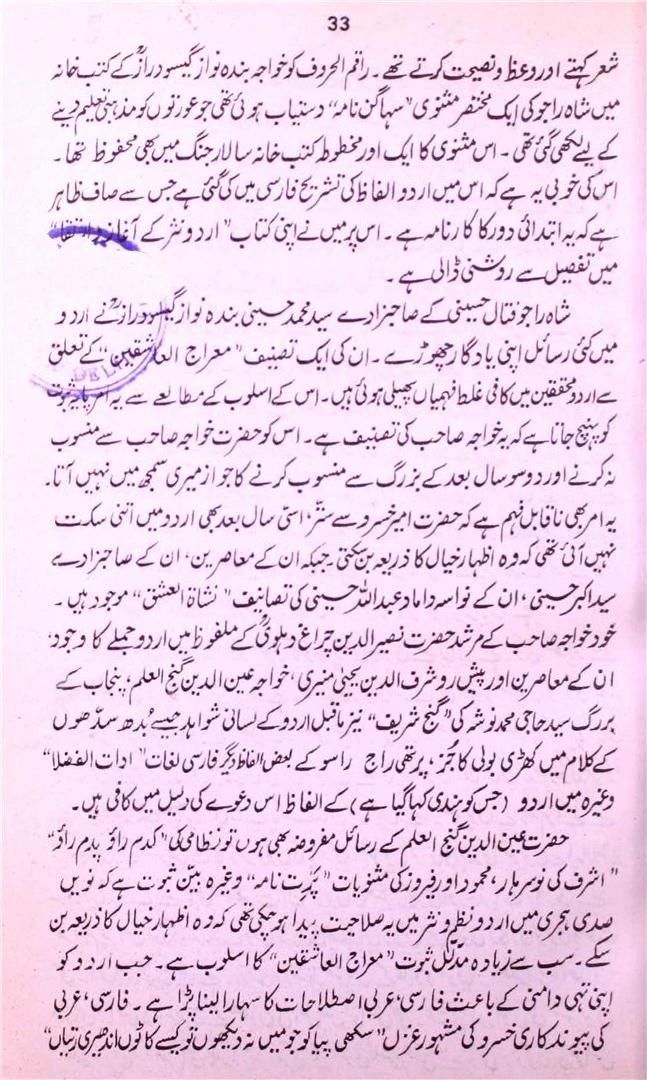 33
شعر کہتے اور وعظ و نصیحت کرتے تھے۔ راقم الحروف کو خواجہ بندہ نواز گیسو درازؒ کے کتب خانہ
میں شاہ راجو کی ایک مختصر مثنوی "سہاگن نامہ" دستیاب ہوئی تھی جو عورتوں کو مذہبی تعلیم دینے
کے لیے لکھی گئی تھی۔ اس مثنوی کا ایک اور مخطوطہ کتب خانہ سالار جنگ میں بھی محفوظ تھا۔
اس کی خوبی یہ ہے کہ اس میں اردو الفاظ کی تشریح فارسی میں کی گئی ہے جس سے صاف ظاہر
ہے کہ یہ ابتدائی دور کا کارنامہ ہے۔ اس پر میں نے اپنی کتاب "اردو نثر کے آغاز و ارتقا"
میں تفصیل سے روشنی ڈالی ہے۔
شاہ راجو قتال حسینی کے صاحبزادے سید محمد حسینی بندہ نواز گیسو درازؒ نے اردو
میں کئی رسائل اپنی یادگار چھوڑے۔ ان کی ایک تصنیف "معراج العاشقین" کے تعلق
سے اردو محققین میں کافی غلط فہمیاں پھیلی ہوئی ہیں۔ اس کے اسلوب کے مطالعے سے یہ امر پایہ ثبوت
کو پہنچ جاتا ہے کہ یہ خواجہ صاحب کی تصنیف ہے۔ اس کو حضرت خواجہ صاحب سے منسوب
نہ کرنے اور دو سو سال بعد کے بزرگ سے منسوب کرنے کا جواز میری سمجھ میں نہیں آتا۔
یہ امر بھی ناقابل فہم ہے کہ حضرت امیر خسرو سے ستّر، اسّی سال بعد بھی اردو میں اتنی سکت
نہیں آئی تھی کہ وہ اظہار خیال کا ذریعہ بن سکتی جبکہ ان کے معاصرین، ان کے صاحبزادے
سید اکبر حسینی، ان کے نواسہ داماد عبداللہ حسینی کی تصانیف "نشاۃ العشق" موجود ہیں۔
خود خواجہ صاحب کے مرشد حضرت نصیر الدین چراغ دہلویؒ کے ملفوظ میں اردو جملے کا وجود،
ان کے معاصرین اور پیش رو شرف الدین یحییٰ منیری، خواجہ عین الدین گنج العلم، پنجاب کے
بزرگ سید حاجی محمد نوشہ کی "گنج شریف" نیز ماقبل اردو کے لسانی شواہد جیسے بُدھ سدّھوں
کے کلام میں کھڑی بولی کا جُز، پرتھی راج راسو کے بعض الفاظ دیگر فارسی لغات "ادات الفضلا"
وغیرہ میں اردو (جس کو ہندی کہا گیا ہے) کے الفاظ اس دعوے کی دلیل میں کافی ہیں۔
حضرت عین الدین گنج العلم کے رسائل مفروضہ بھی ہوں تو نظامی کی "کدم راؤ پدم راؤ"
"اشرف کی نوسرہار، محمود اور فیروز کی مثنویات "پرت نامہ" وغیرہ بیّن ثبوت ہے کہ نویں
صدی ہجری میں اردو نظم و نثر میں یہ صلاحیت پیدا ہو چکی تھی کہ وہ اظہار خیال کا ذریعہ بن
سکے۔ سب سے زیادہ مدلّل ثبوت "معراج العاشقین" کا اسلوب ہے۔ جب اردو کو
اپنی تہی دامنی کے باعث فارسی، عربی اصطلاحات کا سہارا لینا پڑا ہے۔ فارسی، عربی
کی پیوند کاری خسرو کی مشہور غزل "سکھی پیا کو جو میں نہ دیکھوں تو کیسے کاٹوں اندھیری رتیاں"